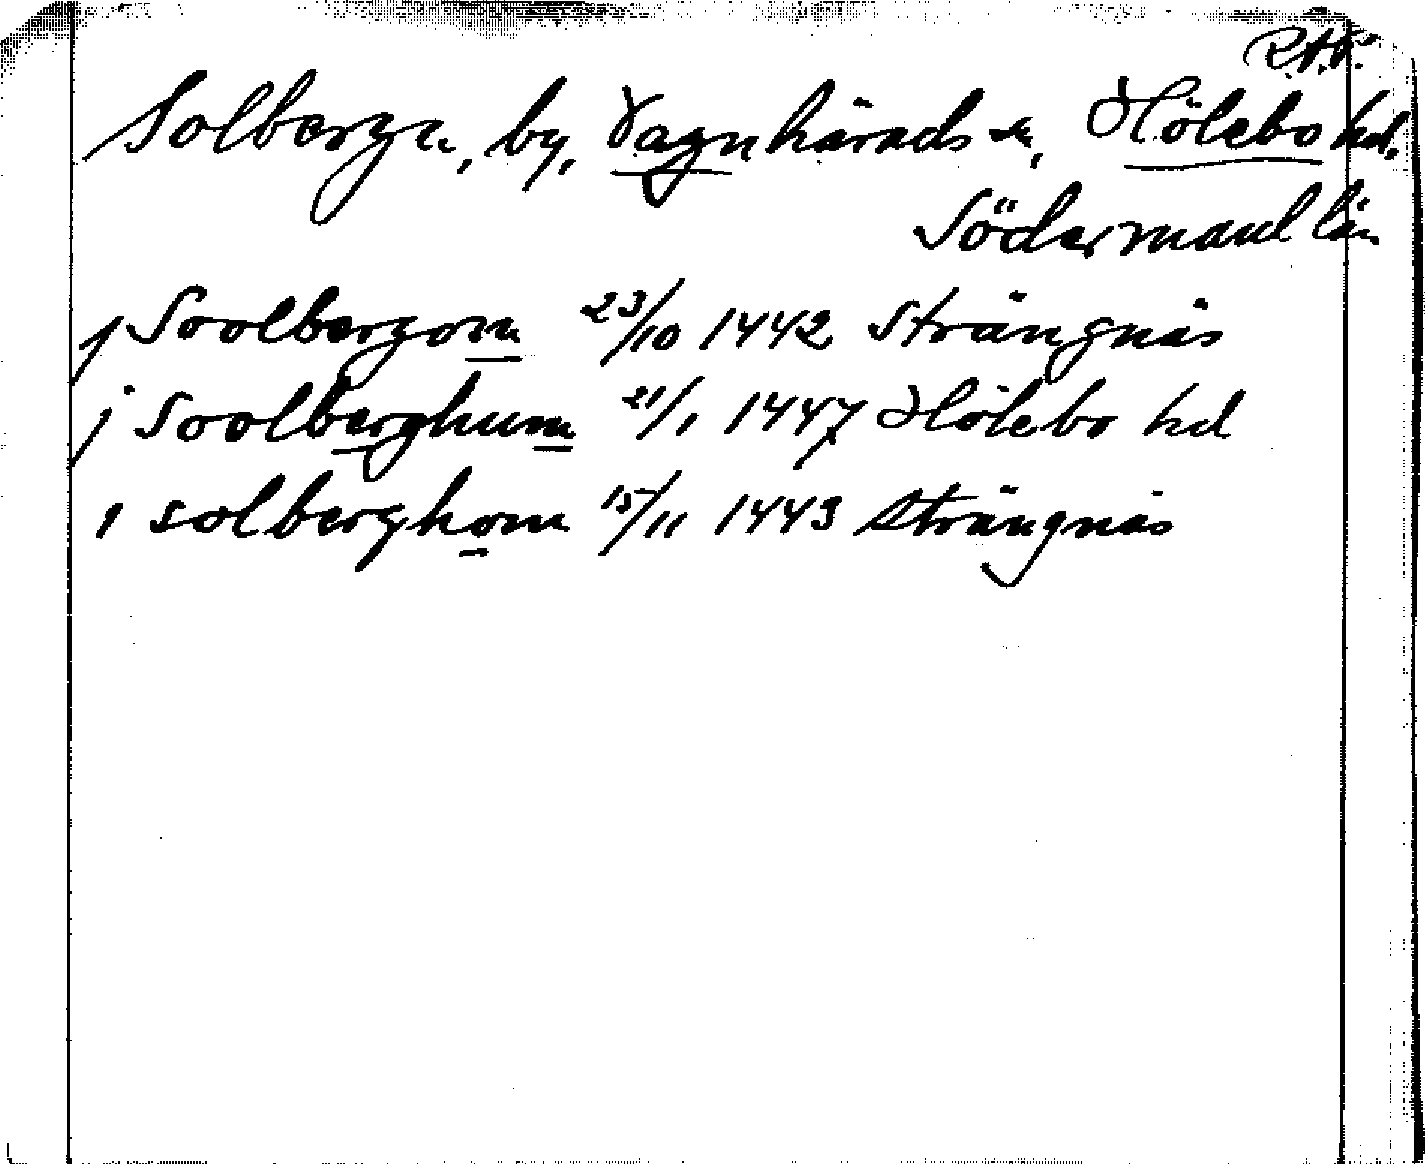 R.A.P.
Solberga, by, Vagnhärads sn, Hölebo hd.
Södermanl län
j Soolbergom 23/10 1442 Strängnäs
j Soolberghum 21/1 1447 Hölebo hd
i solberghom 15/11 1443 Strängnäs